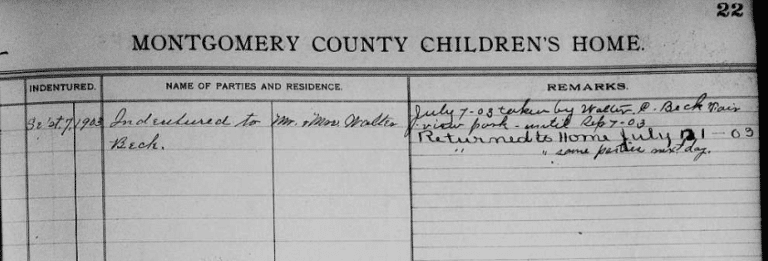 22
MONTGOMERY COUNTY CHILDREN'S HOME.
INDENTURED. NAME OF PARTIES AND RESIDENCE. REMARKS.
July 7-03 taken by Walter C. Beck Fair
Se'pt 7, 1903 Indentured to Mr. & Mrs Walter
view park - until Sep 7-03
Beck.
Returned to Home July 21-03
" " same parties next day.